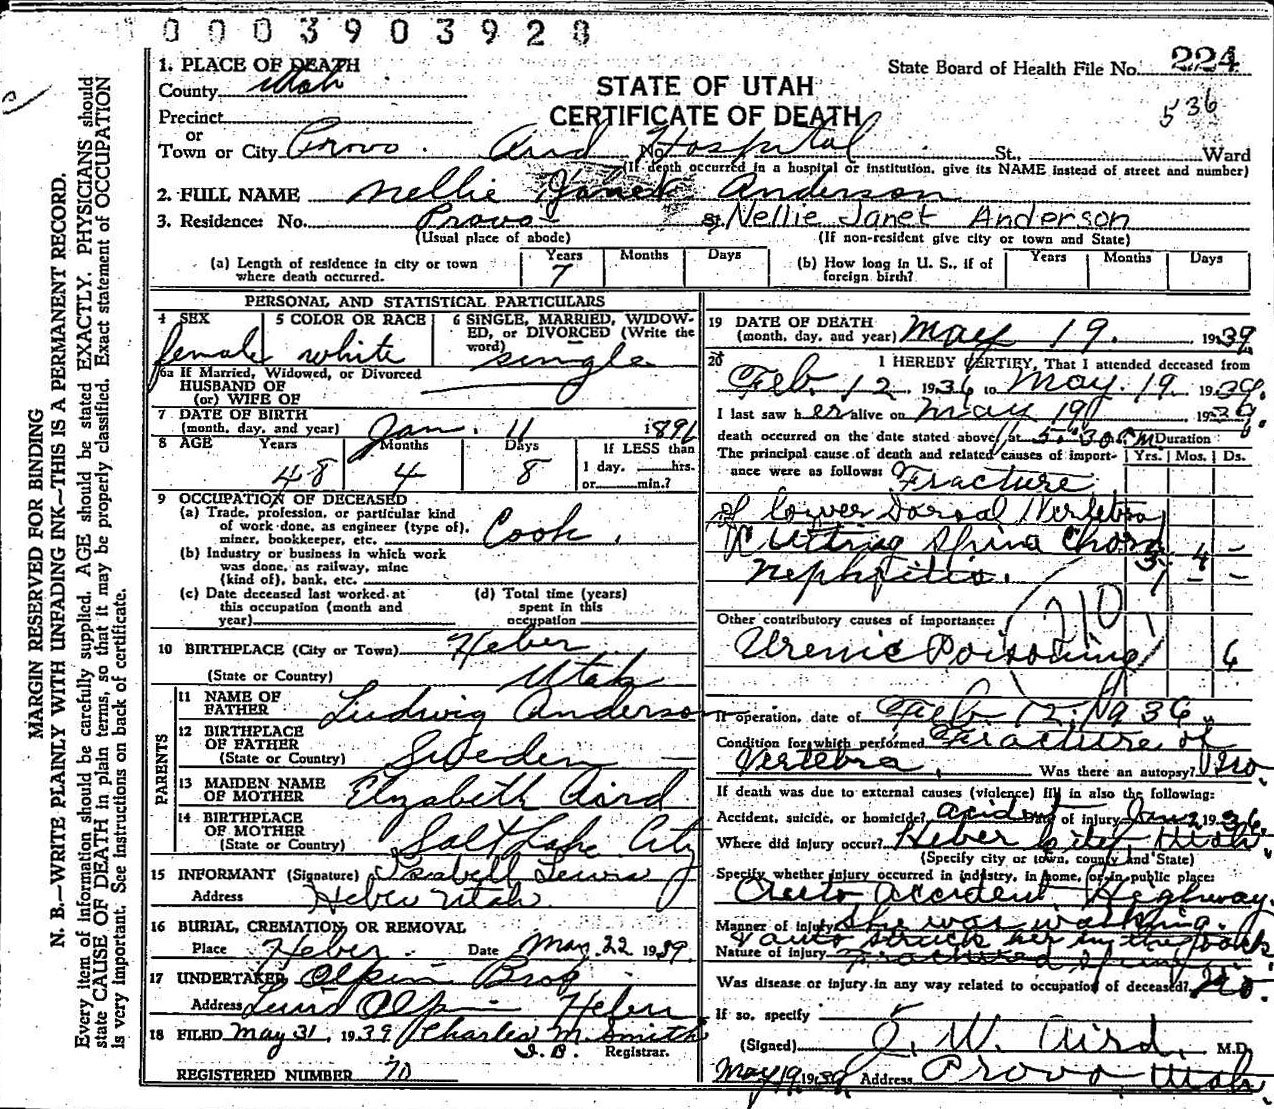 0 0 0 3 9 0 3 9 2 8
1. PLACE OF DEATH
County Utah
Precinct
or
Town or City Provo. Aird No. Hospital St., Ward
(If death occurred in a hospital or institution, give its NAME instead of street and number)
STATE OF UTAH
CERTIFICATE OF DEATH
State Board of Health File No. 224
536
2. FULL NAME Nellie Janet Anderson
3. Residence: No. Provo St. Nellie Janet Anderson
(Usual place of abode) (If non-resident give city or town and State)
(a) Length of residence in city or town where death occurred. Years 7 Months Days
(b) How long in U. S., if of foreign birth? Years Months Days
PERSONAL AND STATISTICAL PARTICULARS
4 SEX female
5 COLOR OR RACE white
6 SINGLE, MARRIED, WIDOWED, or DIVORCED (Write the word) single
6a If Married, Widowed, or Divorced
HUSBAND OF
(or) WIFE OF
7 DATE OF BIRTH
(month, day, and year) Jan. 11 1891
8 AGE Years 48 Months 4 Days 8 If LESS than 1 day. hrs. or min.?
9 OCCUPATION OF DECEASED
(a) Trade, profession, or particular kind
of work done, as engineer (type of),
miner, bookkeeper, etc. Cook.
(b) Industry or business in which work
was done, as railway, mine
(kind of), bank, etc.
(c) Date deceased last worked at
this occupation (month and
year)
(d) Total time (years)
spent in this
occupation
10 BIRTHPLACE (City or Town) Heber
(State or Country) Utah
PARENTS
11 NAME OF
FATHER Ludwig Anderson
12 BIRTHPLACE
OF FATHER
(State or Country) Sweden
13 MAIDEN NAME
OF MOTHER Elyzabeth Aird
14 BIRTHPLACE
OF MOTHER
(State or Country) Salt Lake City
15 INFORMANT (Signature) Isabell Lewis
Address Heber Utah.
16 BURIAL, CREMATION, OR REMOVAL
Place Heber Date May. 22 1939.
17 UNDERTAKER Olpin Bros
Address Heber
18 FILED May 31, 1939 Charles M. Smith
Registrar.
REGISTERED NUMBER 70
19 DATE OF DEATH
(month, day, and year) May 19. 1939
20 I HEREBY CERTIFY, That I attended deceased from
Feb. 12 1936 to May. 19 1939.
I last saw her alive on May 19 1939.
death occurred on the date stated above, at 5:30 P.M. Duration
The principal cause of death and related causes of importance were as follows: Yrs. Mos. Ds.
Fracture
of lower Dorsal Vertebra
Cutting Spina Chord 3 4 -
Nephritis. 1 - -
210
Other contributory causes of importance:
Uremic Poisoning 6
If operation, date of Feb. 12, 1936.
Condition for which performed Fracture of
Vertebra. Was there an autopsy? No.
If death was due to external causes (violence) fill in also the following:
Accident, suicide, or homicide? Acident Date of injury 1936
Where did injury occur? Heber City, Utah.
(Specify city or town, county and State)
Specify whether injury occurred in industry, in home, or in public place:
Auto Accident. Highway.
Manner of injury She was walking.
& auto struck her in the back
Nature of injury Fractured Spine
Was disease or injury in any way related to occupation of deceased? No.
If so, specify
(Signed) J. W. Aird. M.D.
May 19, 1939 Address Provo, Utah.
MARGIN RESERVED FOR BINDING
N. B.—WRITE PLAINLY WITH UNFADING INK—THIS IS A PERMANENT RECORD.
Every item of information should be carefully supplied. AGE should be stated EXACTLY. PHYSICIANS should
state CAUSE OF DEATH in plain terms, so that it may be properly classified. Exact statement of OCCUPATION
is very important. See instructions on back of certificate.